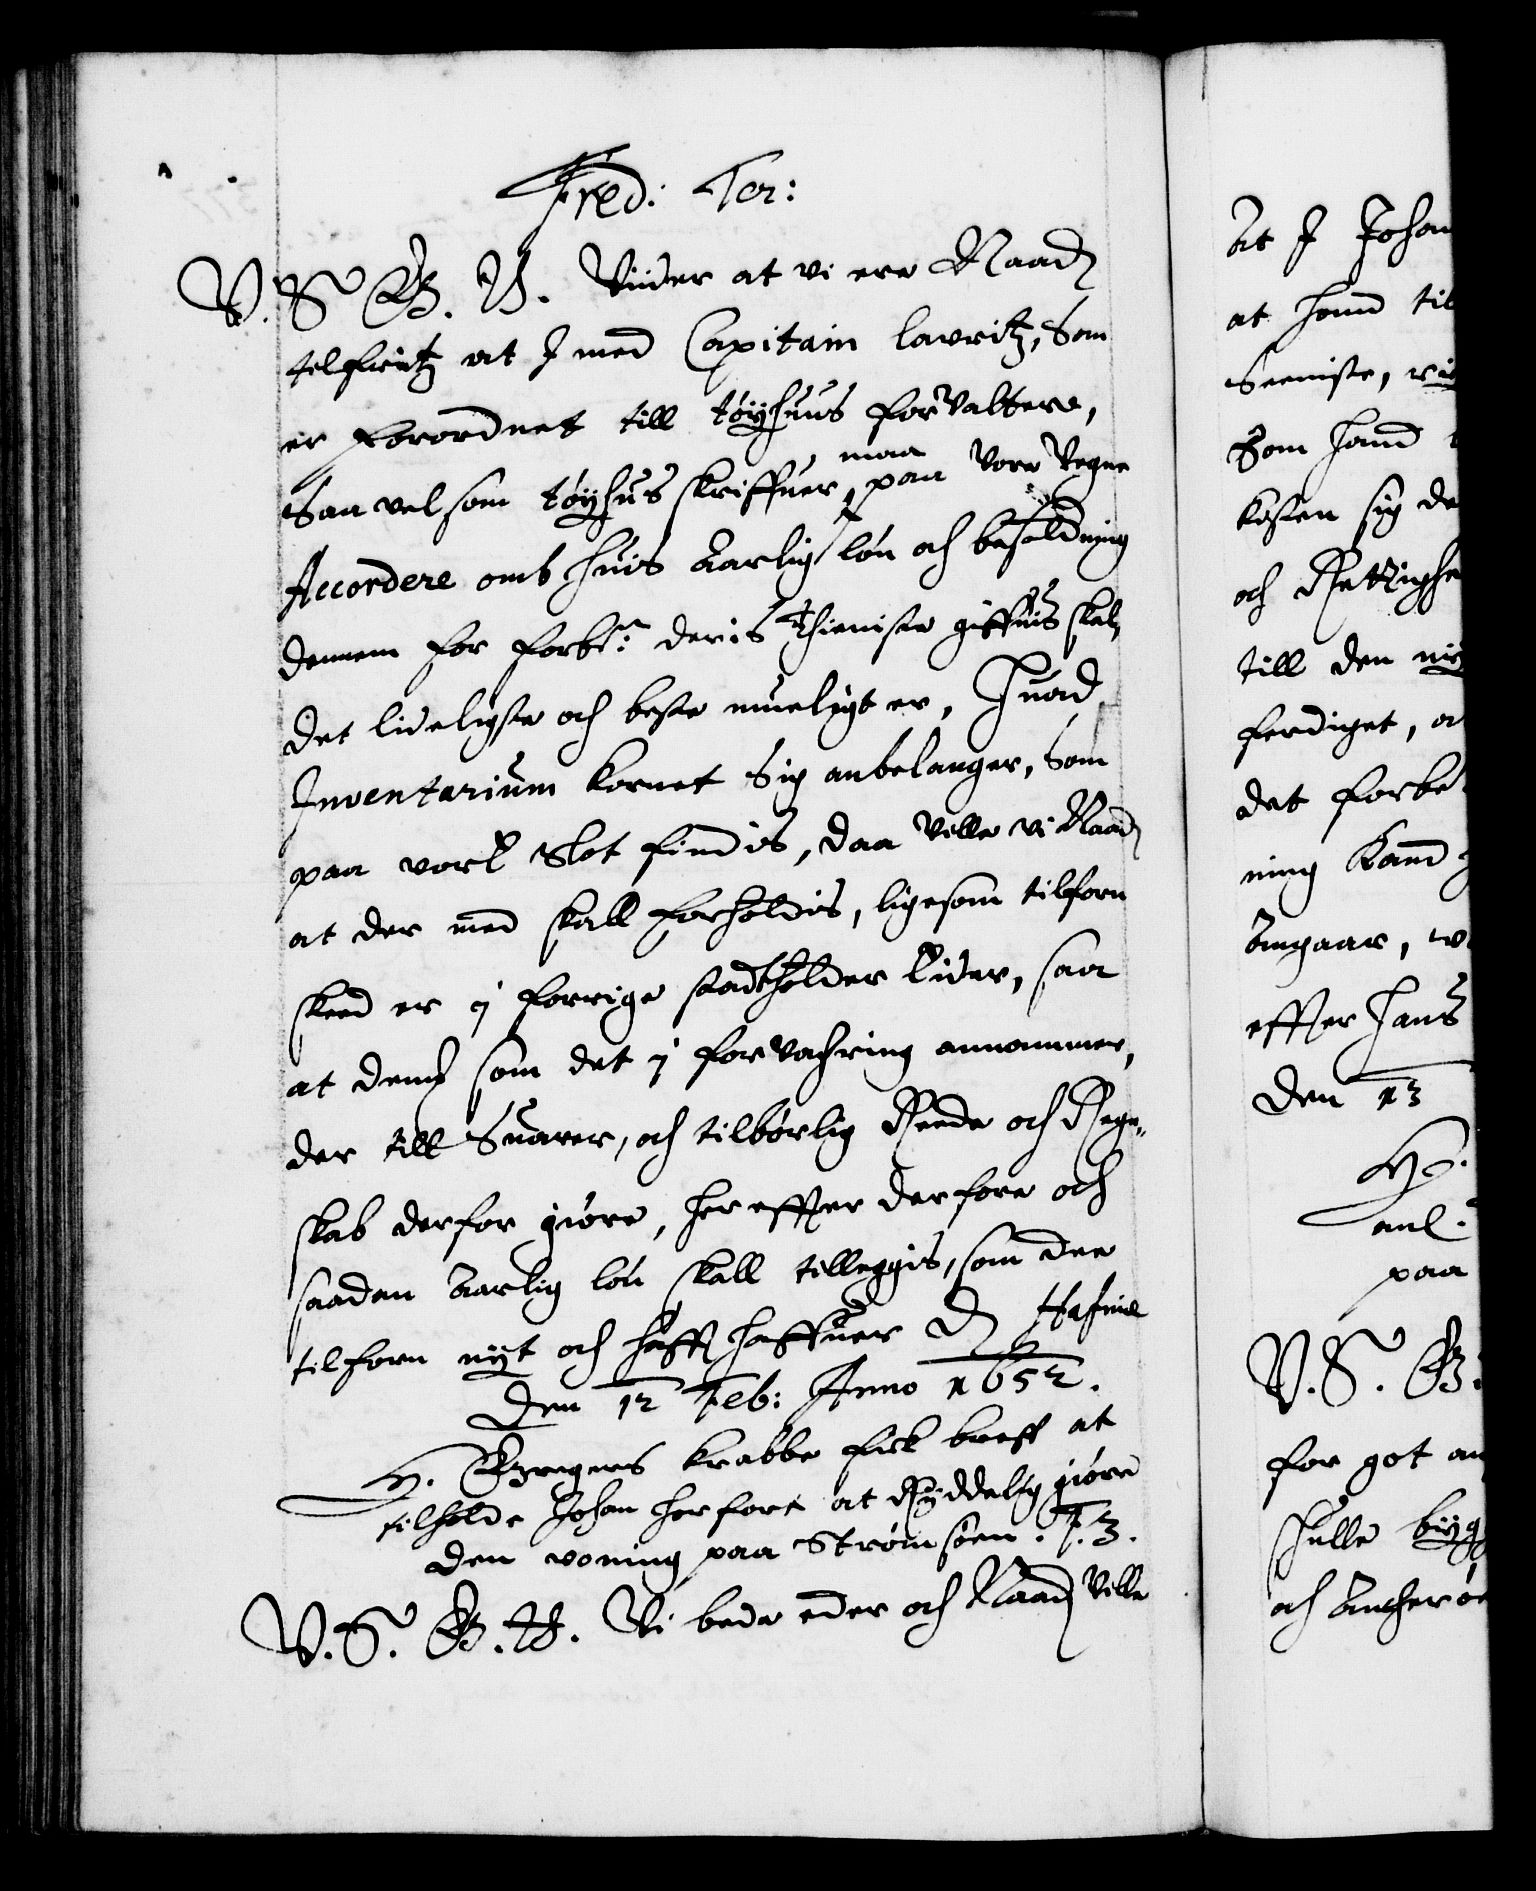 Fred: Ter:
V. S G. H. Viider at vi ere Naad
tilfrütz at I med Capitain Lavritz, Som
er forordnet till tøyhuus forvaltere,
Saa vel som tøyhus skriffuer, maa paa Vore Vegne
Accordere omb huis aarlig løn och besoldning
dennem for forbne: deris thieniste giffuis skal,
det lideligste och beste mueligt er, Huad
Inventarium kornet Sig anbelanger, Som
paa vort Slot findis, daa Ville vi Naad
at der med skall forholdis, ligesom tilforn
skeed er i forrige stadtholder tider, saa
at dend som det i forvahring annammer,
der till Suarer, och tilbørlig Reede och Regen
skab derfor giøre, her effter derfore och
saadan aarlig løn skall tilleggis, som dee
tilforn nyt och hafft haffuer D Hafniæ
Den 12 Feb: Anno 1652.
H. Gregers krabbe fick breff at
tilholde Johan herfort at Ryddelig giøre
den voning paa Strømsøen. F. 3.
V. S. G. H. Vi bede eder och Naad Ville
At I Johan
at hand til
Seeniste,
Som hand
kosten sig de
och Retzighe
till den ny
ferdiget,
det forbe
ning kand
Angaar,
effter Hans
Den 13
H.
anl.
paa
V. S. G.
for got an
skulle byg
och